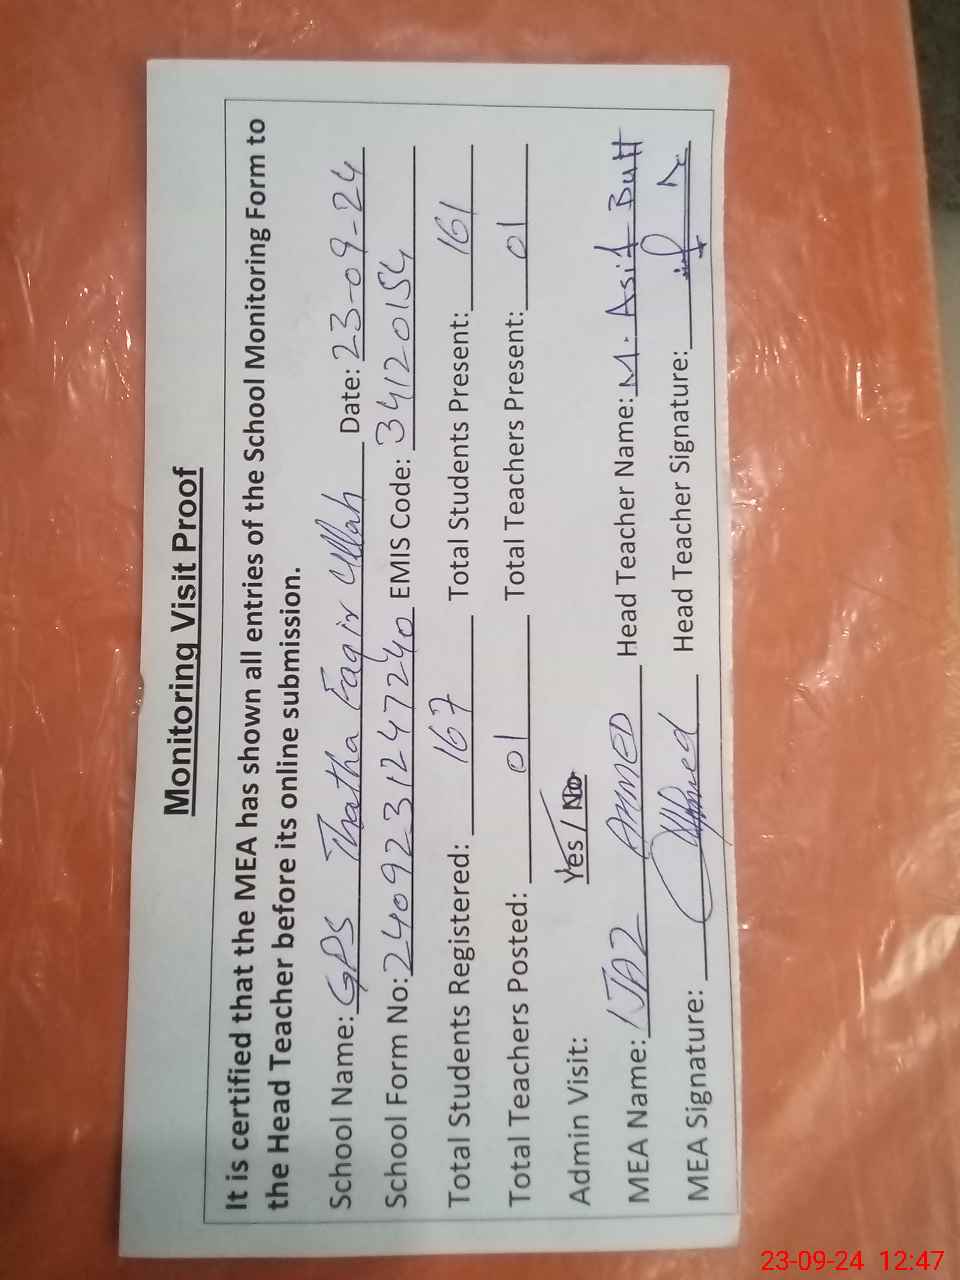 Monitoring Visit Proof
It is certified that the MEA has shown all entries of the School Monitoring Form to
the Head Teacher before its online submission.
School Name: GPS Thatha Faqir Ullah Date: 23-09-24
School Form No: 2409231247240 EMIS Code: 34120154
Total Students Registered: 167 Total Students Present: 161
Total Teachers Posted: 01 Total Teachers Present: 01
Admin Visit: Yes / No
MEA Name: IJAZ AHMED Head Teacher Name: M. Asif Butt
MEA Signature: Head Teacher Signature:
23-09-24 12:47